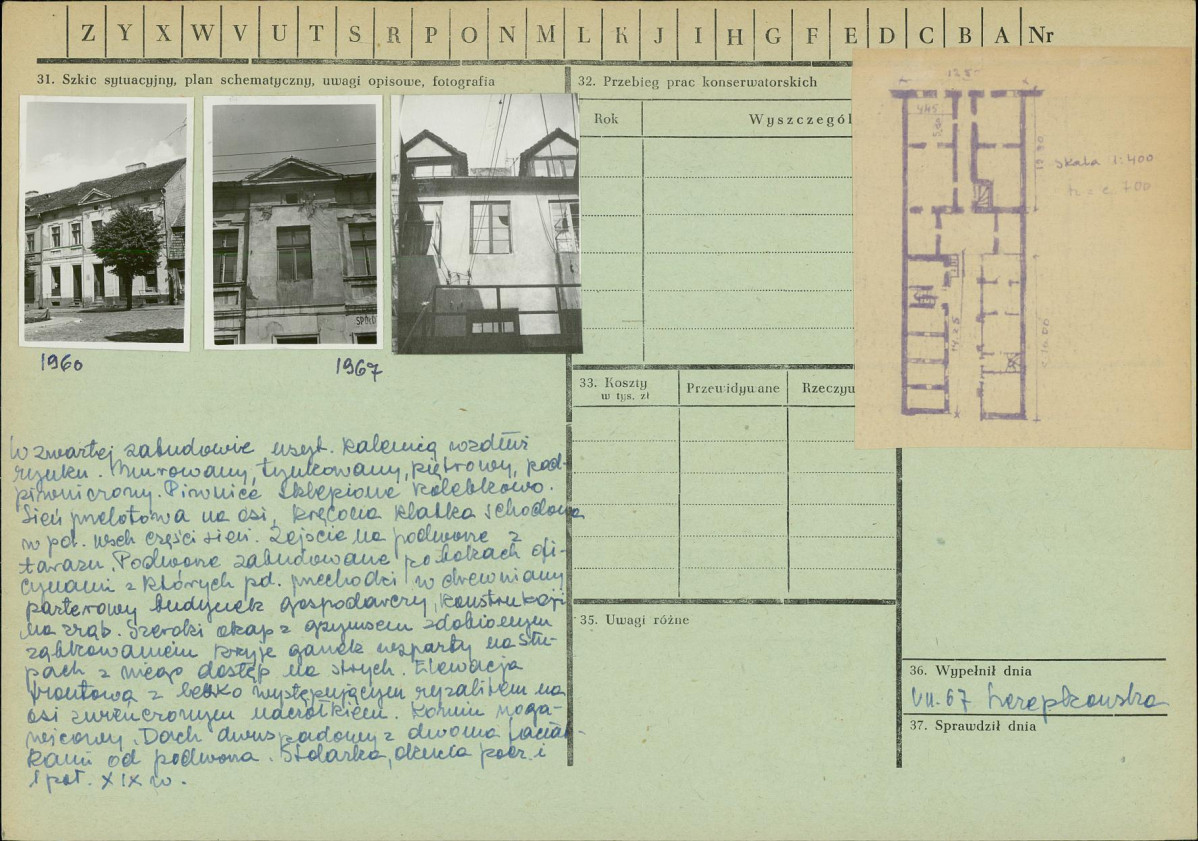 Z Y X W V U T S R P O N M L K J I H G F E D C B A Nr
31. Szkic sytuacyjny, plan schematyczny, uwagi opisowe, fotografia
1960
1967
SPOŁD
W zwartej zabudowie usyt. kalenicą wzdłuż
rynku. Murowany, tynkowany, piętrowy, pod-
piwniczony. Piwnice sklepione kolebkowo.
Sień przelotowa na osi, kręcona klatka schodowa
w pd. wsch części sieni. Zejście na podwórze z
tarasu. Podwórze zabudowane po bokach ofi-
cynami z których pd. przechodzi w drewniany
parterowy budynek gospodarczy, konstrukcji
na zrąb. Szeroki okap z gzymsem zdobionym
ząbkowaniem kryje ganek wsparty na słu-
pach z niego dostęp na strych. Elewacja
frontowa z lekko występującym ryzalitem na
osi zwieńczonym naczółkiem. Komin
Dach dwuspadowy z dwoma facjat-
kami od podwórza. Stolarka, okucia pocz. i
I poł. XIX w.
32. Przebieg prac konserwatorskich
Rok
Wyszczegól
33. Koszty
w tys. zł
Przewidywane
Rzeczyw
35. Uwagi różne
skala 1:400
36. Wypełnił dnia
VII.67 Szrepkowska
37. Sprawdził dnia